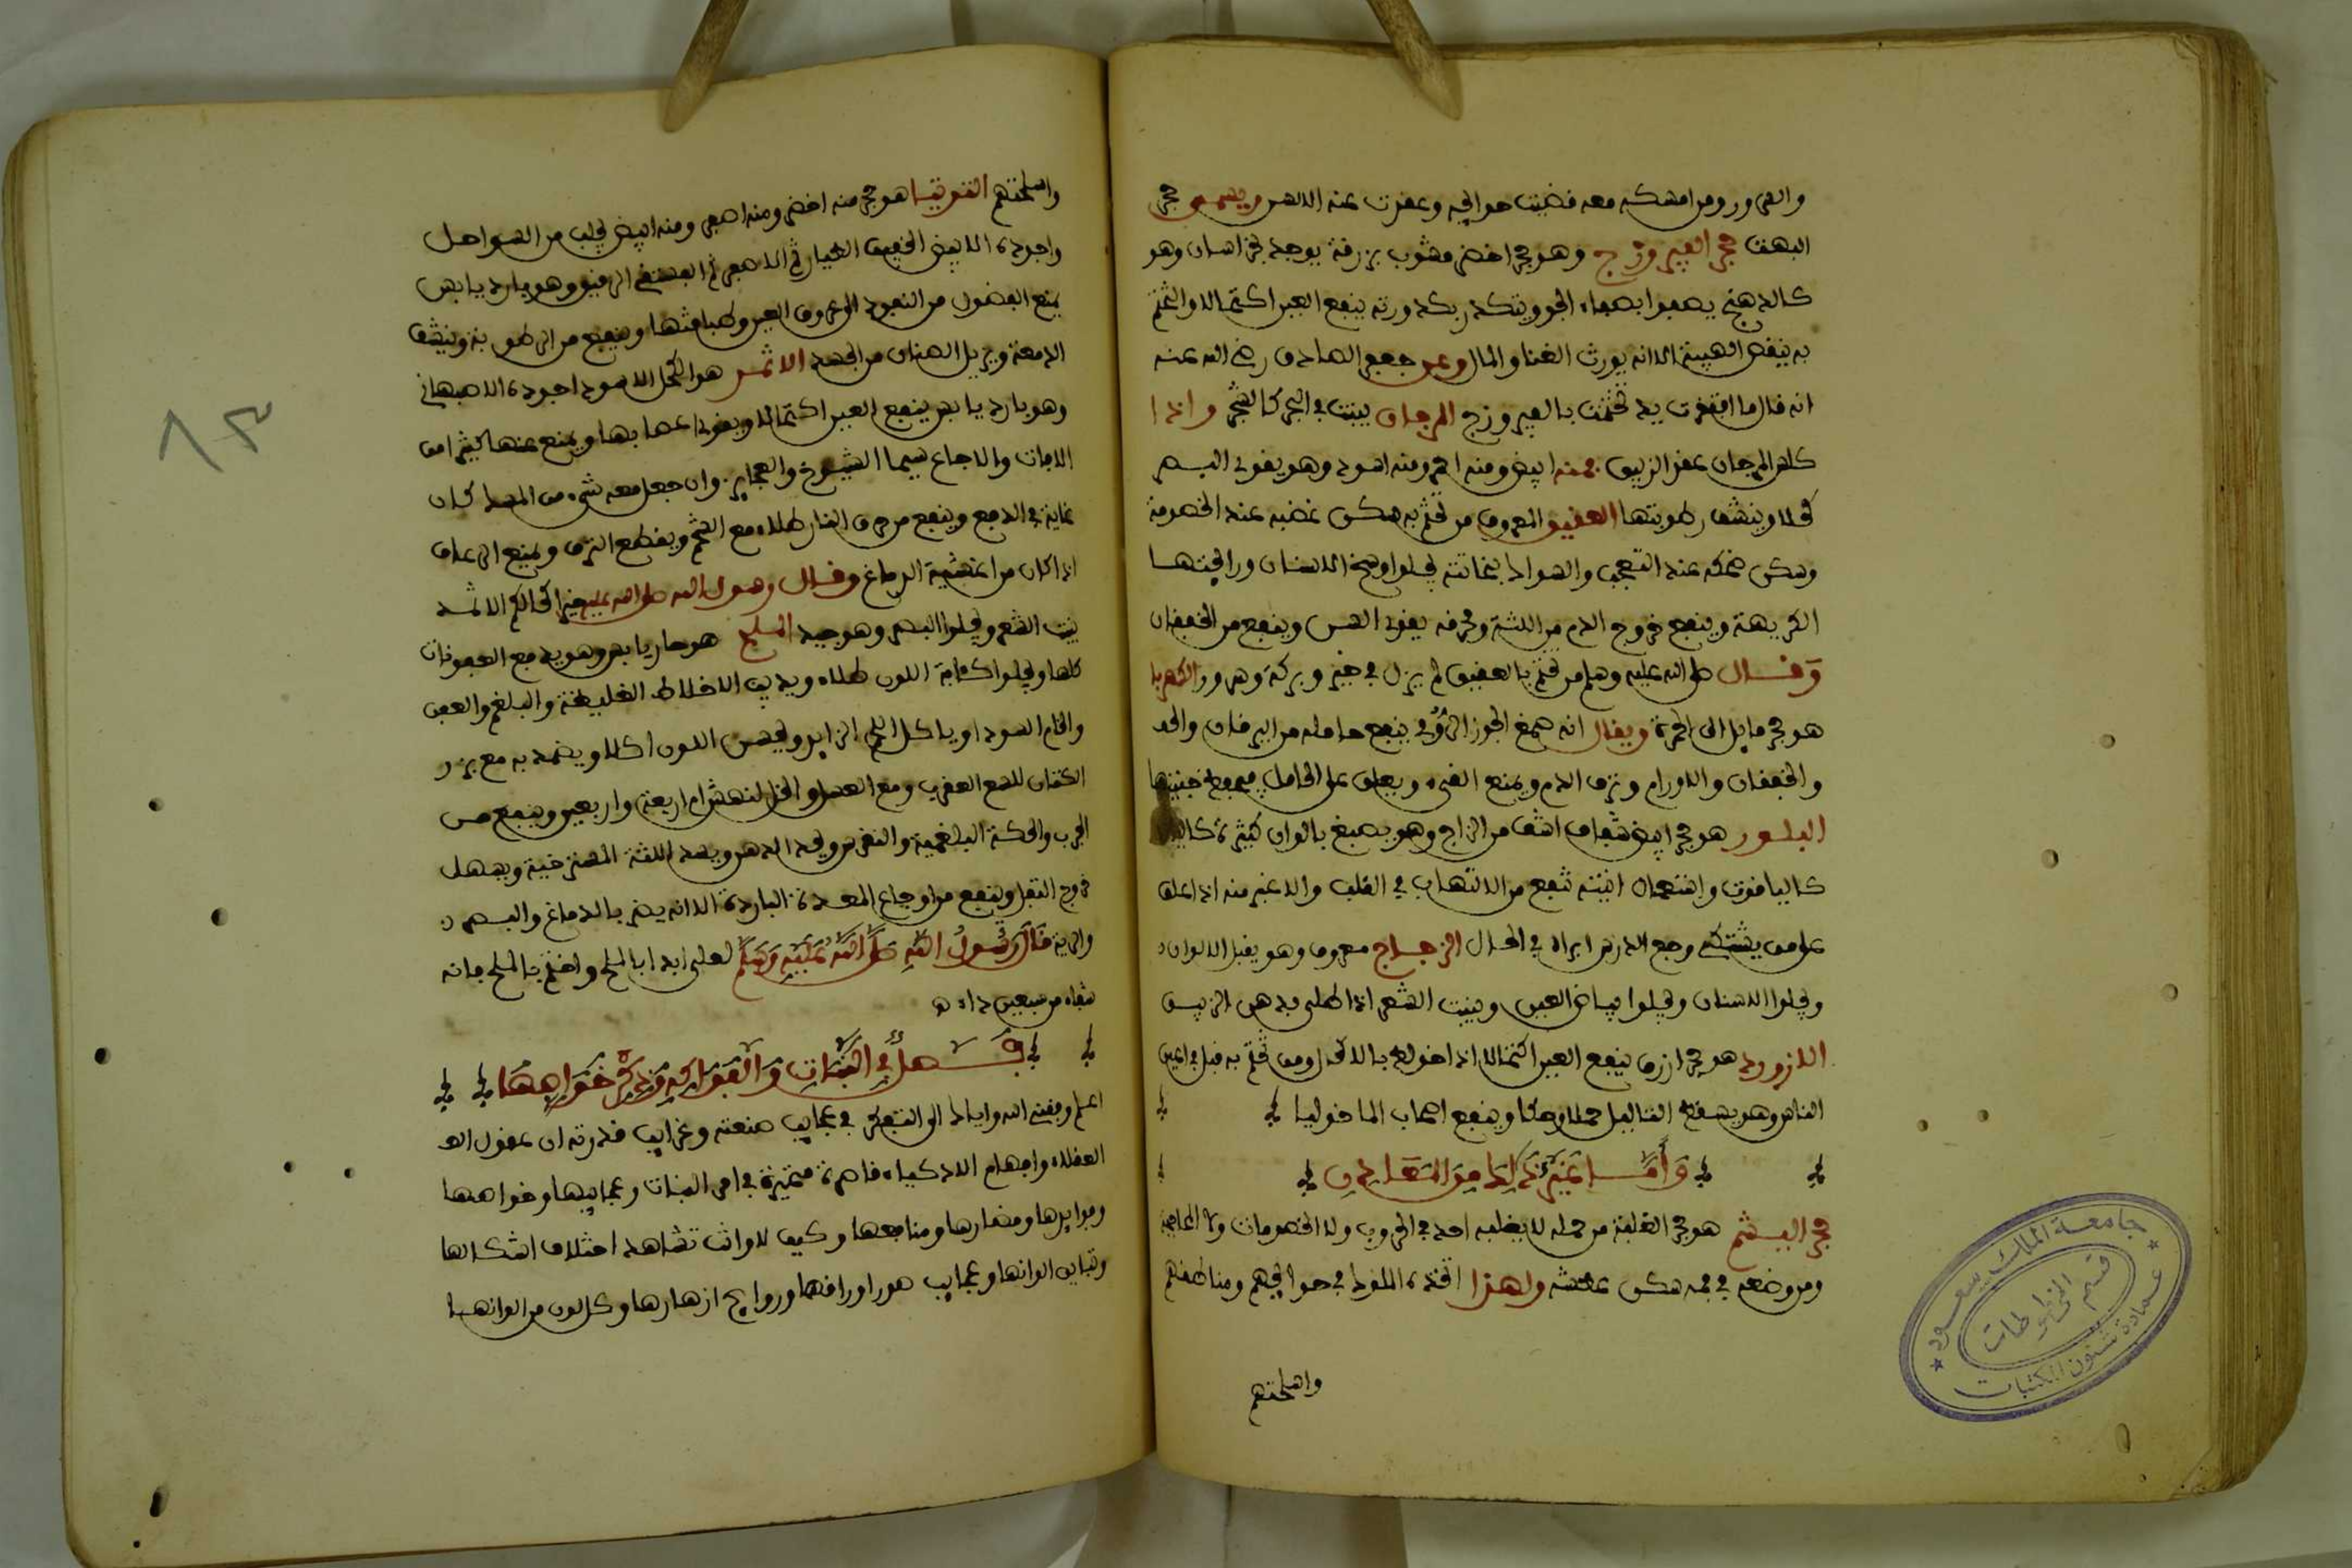 والسرور ومن امسكه معه قضيت حوايجه وعقدت عنه الالسن ويسمى حجر
البهت حجر الفيروزج وهو حجر اخضر مشوب بزرقة يوجد بخراسان وهو
كالدهنج يصفوا بصفاء الجو ويتكدر بكدورته ينفع العين اكتحالا والتختم
به ينقص الهيبة الا انه يورث الغنا والمال وعن جعفر الصادق رضي الله عنه
انه قال ما افتقرت يد تختمت بالفيروزج المرجان ينبت في البحر كالشجر واذا
كلس المرجان عقد الزيبق فمنه ابيض ومنه احمر ومنه اسود وهو يقوي البصر
كحلا وينشف رطوبتها العقيق المعروف من تختم به سكن غضبه عند الخصومة
وسكن ضحكه عند التعجب والسواك بنحاتته يجلوا وسخ الاسنان ورايحتها
الكريهة وينفع خروج الدم من اللثة ومحرقه يقوي السن وينفع من الخفقان
وقال صلى الله عليه وسلم من تختم بالعقيق لم يزل في خير وبركة وسرور الكهربا
هو حجر مايل الى الحمرة ويقال انه صمغ الجوز الرومي ينفع حامله من اليرقان والخد
والخفقان والاورام ونزف الدم ويمنع القيء ويعلق على الحامل فيحفظ جنينها
البلور هو حجر ابيض شفاف اشف من الزاج وهو يصبغ بالوان كثيرة
كالياقوت واستعمال انيته تنفع من الالتهاب في القلب والاغبر منه اذا علق
على من يشتكي وجع الضرس ابراه في الحال الزجاج معروف وهو يقبل الالوان
ويجلوا الاسنان ويجلوا بياض العين وينبت الشعر اذا طلى بدهن الزيبق
اللازورد هو حجر ازرق ينفع العين اكتحالا اذا خلط بالاكحال ومن تختم به نبل في اعين
الناس وهو يسقط الثاليل حملا وحكا وينفع اصحاب الماخوليا
وأما غير ذلك من المعادن
حجر اليشم هو حجر الغلبة من حمله لا يغلبه احد في الحروب ولا الخصومات ولا المحاجة
ومن وضعه في فمه سكن عطشه ولهذا اتخذه الملوك في حوايجهم ومناطقهم
واسلحتهم
واسلحتهم التوتيا هو حجر منه اخضر ومنه اصفر ومنه ابيض يجلب من السواحل
واجوده الابيض الخفيف الطيار ثم الاصفر ثم الفستقي الرقيق وهو بارد يابس
يمنع الفضول من النفوذ الى عروق العين وطبقاتها وينفع من الرطوبة وينشف
الدمعة ويزيل الصنان من الجسد الاثمد هو الكحل الاسود اجوده الاصبهاني
وهو بارد يابس ينفع العين اكتحالا ويقوي اعصابها ويمنع عنها كثيرا من
الافات والاوجاع سيما الشيوخ والعجايز وان جعل معه شيء من المسك كان
غاية في الدمع وينفع من حرق النار طلاء مع الشحم ويقطع النزف ويمنع الرعاف
اذا كان من اغشية الدماغ وقال رسول الله صلى الله عليه خير اكحالكم الاثمد
ينبت الشعر ويجلوا البصر وهو جيد الملح هو حار يابس وهو يدفع العفونات
كلها ويجلوا كمامة اللون طلاء ويذيب الاخلاط الغليظة والبلغم والعفن
والخام السودا وياكل اللحم الزايد ويحسن اللون اكلا ويضمد به مع بزر
الكتان للسع العقرب ومع العسل والخل لنهش ام اربعة واربعين وينفع من
الجرب والحكة البلغمية والنقرس ويحد الذهن ويشد اللثة المسترخية ويسهل
خروج الثفل وينفع من اوجاع المعدة الباردة الا انه يضر بالدماغ والبصر
والرية قال رسول الله صلى الله عليه وسلم لعلي ابدا بالملح واختم بالملح فانه
شفاء من سبعين داء
فصل في النبات والفواكه وذكر خواصها
اعلم وفقني الله واياك الى التفكر في عجايب صنعته وغرايب قدرته ان عقول الع
العقلاء وافهام الاذكياء قاصرة متحيرة في امر النبات وعجايبها وخواصها
وفوايدها ومضارها ومنافعها وكيف لا وانت تشاهد اختلاف اشكالها
وتباين الوانها وعجايب صور اوراقها وروايح ازهارها وكل لون من الوانها
٨٣
جامعة الملك سعود
قسم المخطوطات
عمادة شئون المكتبات